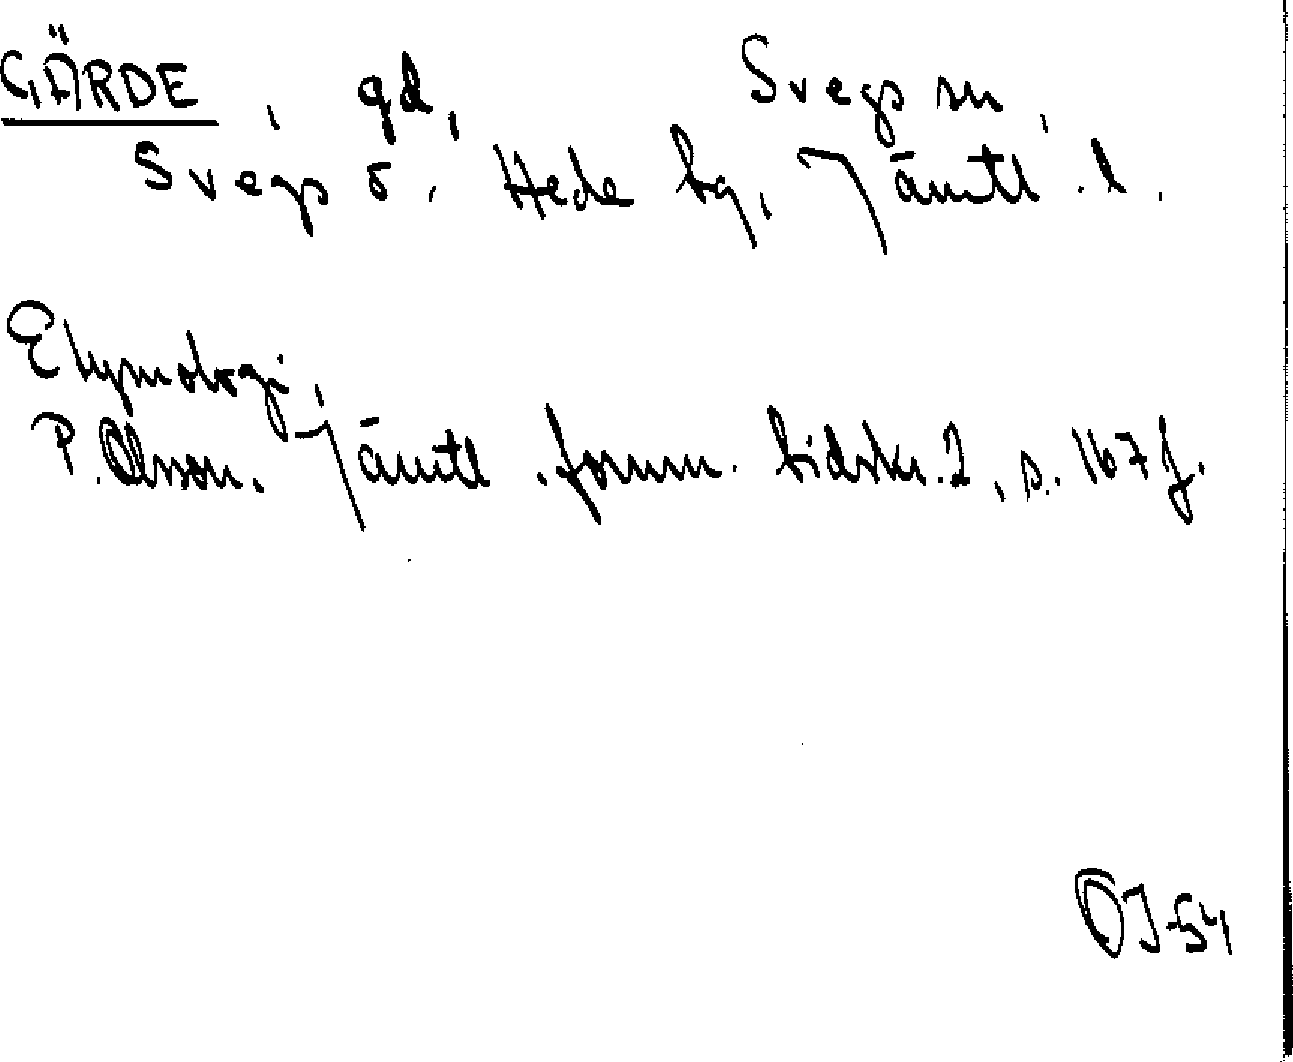 GÄRDE, gd, Svegs sn,
Svegs ö, Hede tg, Jämtl. l.
Etymologi,
P. Olsson. Jämtl. fornm. tidskr. 2, s. 167 f.
OJ-54